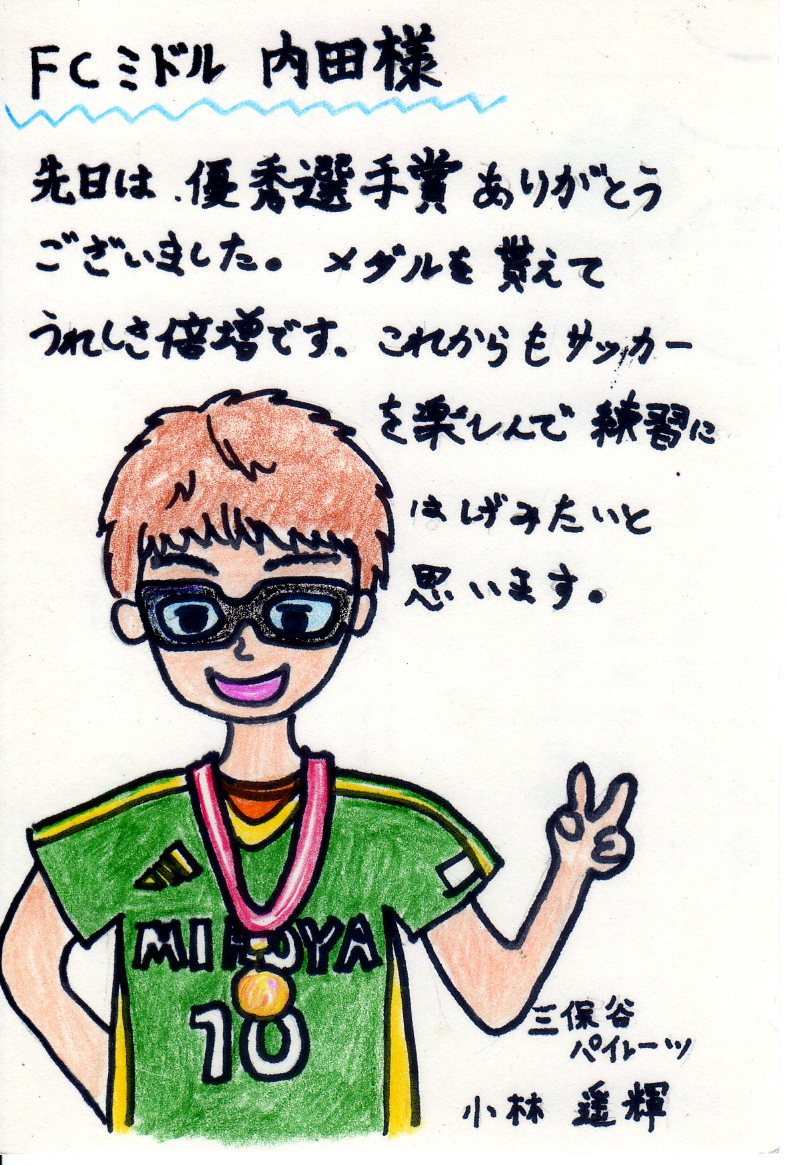 FCミドル 内田様
先日は、優秀選手賞ありがとう
ございました。メダルを貰えて
うれしさ倍増です。これからもサッカー
を楽しんで練習に
はげみたいと
思います。
MI
YA
10
三保谷
パイレーツ
小林 遥輝